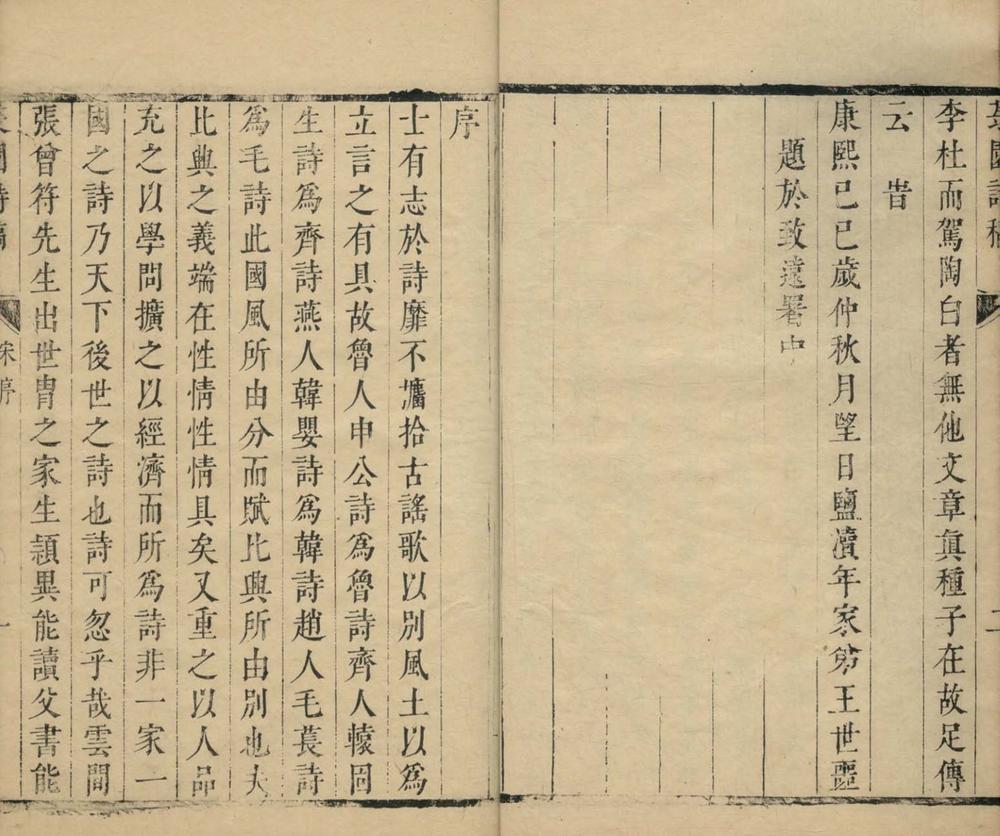 園詩稿 二
李杜而駕陶白者無他文章眞種子在故足傳
云 旹
康熙己巳歲仲秋月望日鹽瀆年家弟王世噩
題於致遠署中
序
士有志於詩靡不攟拾古謠歌以別風土以爲
立言之有具故魯人申公詩爲魯詩齊人轅固
生詩爲齊詩燕人韓嬰詩爲韓詩趙人毛萇詩
爲毛詩此國風所由分而賦比興所由別也夫
比興之義端在性情性情具矣又重之以人品
充之以學問擴之以經濟而所爲詩非一家一
國之詩乃天下後世之詩也詩可忽乎哉雲間
張曾符先生出世冑之家生頴異能讀父書能
園詩稿 宋序 一